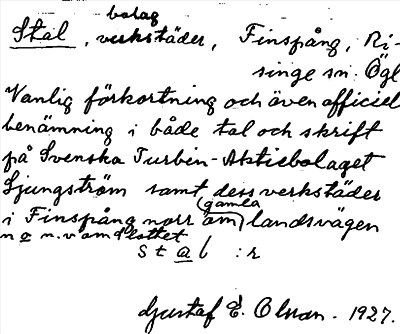 bolag
Stal, verkstäder, Finspång, Ri-
singe sn. Ögl
Vanlig förkortning och även officiell
benämning i både tal och skrift
på Svenska Turbin-Aktiebolaget
Ljungström samt dess verkstäder
(gamla
i Finspång norr om landsvägen
n o n.v om slottet
stal :r
Gustaf E. Olsson. 1927.